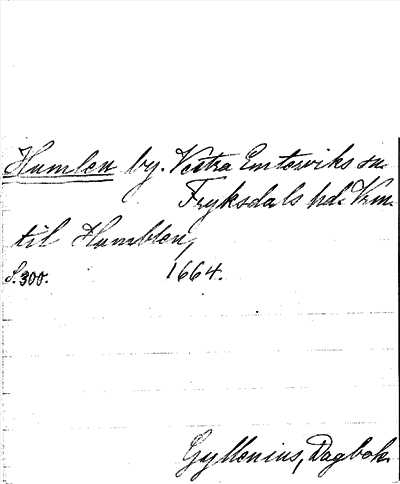 Humlen by. Vestra Emterviks sn.
Fryksdals hd. Vrm.
til Humblen,
S. 300. 1664.
Gyllenius, Dagbok